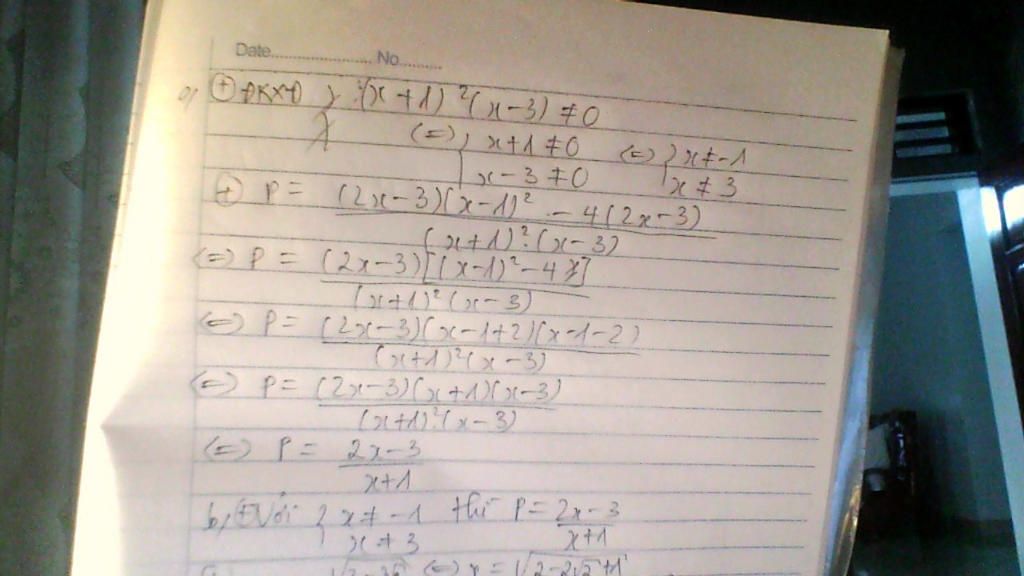 Date.................... No..........
a) ⊕ ĐKXĐ : (x+1)²(x-3) ≠ 0
(=) { x+1 ≠ 0 (=) { x ≠ -1
x-3 ≠ 0 x ≠ 3
⊕ P = (2x-3)(x-1)² - 4(2x-3)
(x+1)².(x-3)
(=) P = (2x-3)[(x-1)²-4]
(x+1)²(x-3)
(=) P = (2x-3)(x-1+2)(x-1-2)
(x+1)²(x-3)
(=) P = (2x-3)(x+1)(x-3)
(x+1)².(x-3)
(=) P = 2x-3
x+1
b, ⊕ Với { x ≠ -1 thì P = 2x-3
x ≠ 3 x+1
(=) x = √2-2√2+1